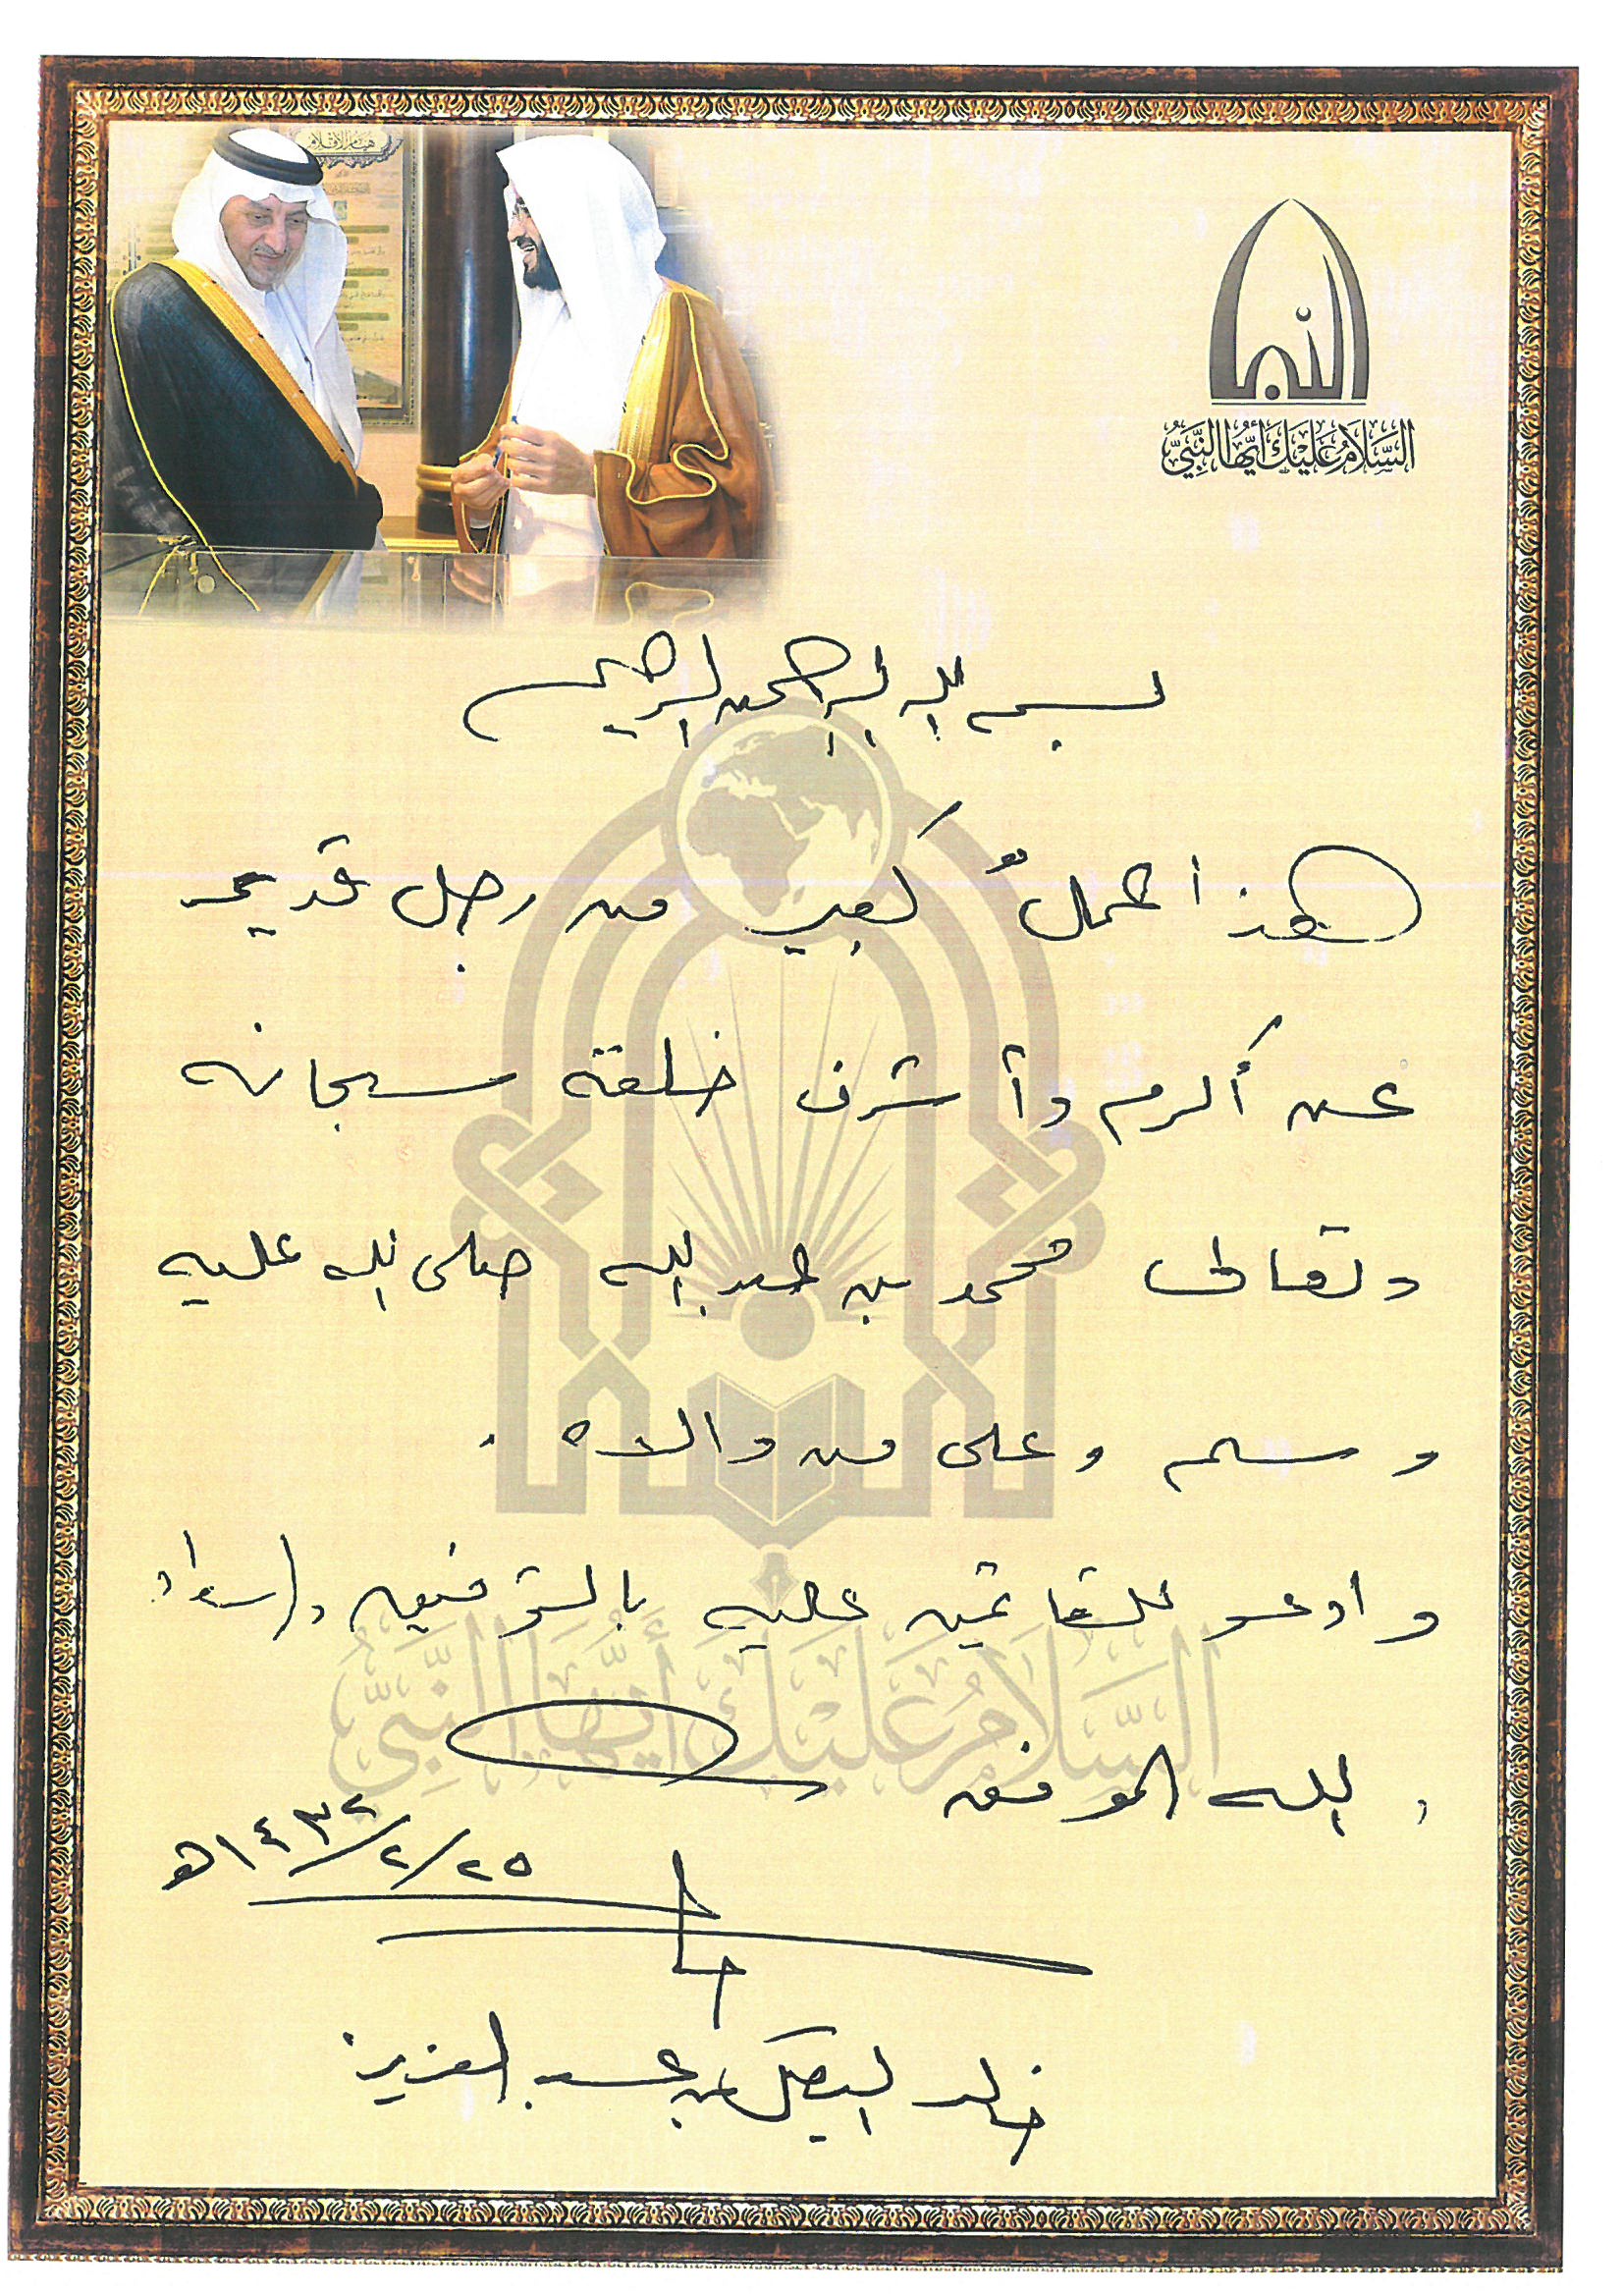 هيام الأقلام
السلام عليك أيها النبي
بسم الله الرحمن الرحيم
هذا عمل كبير من رجل قدير
عن أكرم وأشرف خلقه سبحانه
وتعالى محمد بن عبد الله صلى الله عليه
وسلم وعلى من والاه .
وادعو للقائمين عليه بالتوفيق والسداد
السلام عليك أيها النبي
والله الموفق
٢٥/٢/١٤٣٢هـ
خالد الفيصل بن عبد العزيز